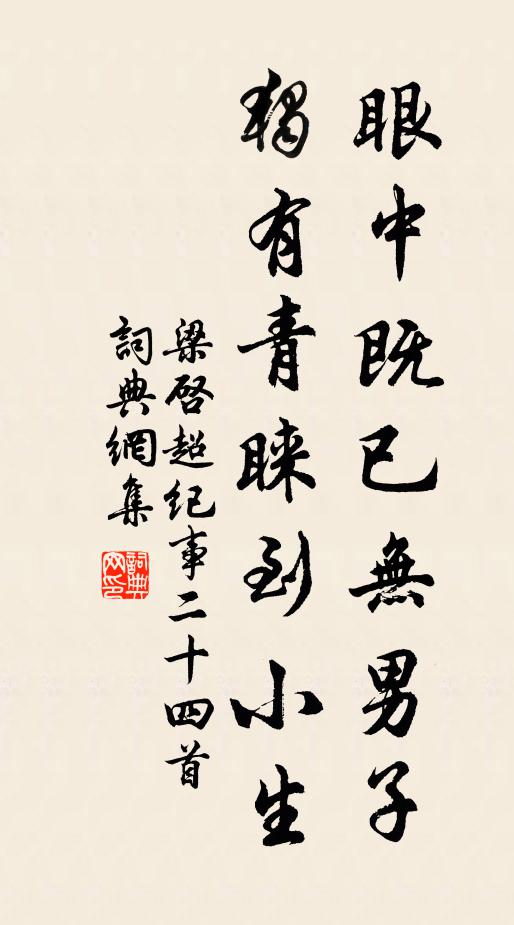 眼中既已無男子
獨有青睞到小生
梁啓超紀事二十四首
詞典網集
詞典网印